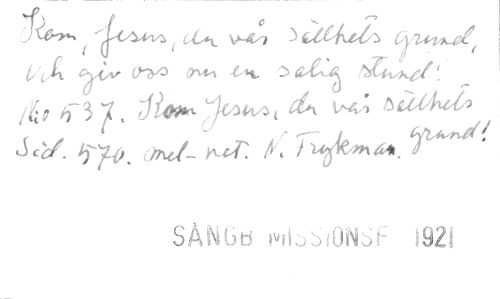 Kom, Jesus, du vår sällhets grund,
och giv oss nu en salig stund!
No 537. Kom Jesus, du vår sällhets
Sid. 570. mel-not. N. Frykman. grund!
SÅNGB MISSIONSF 1921